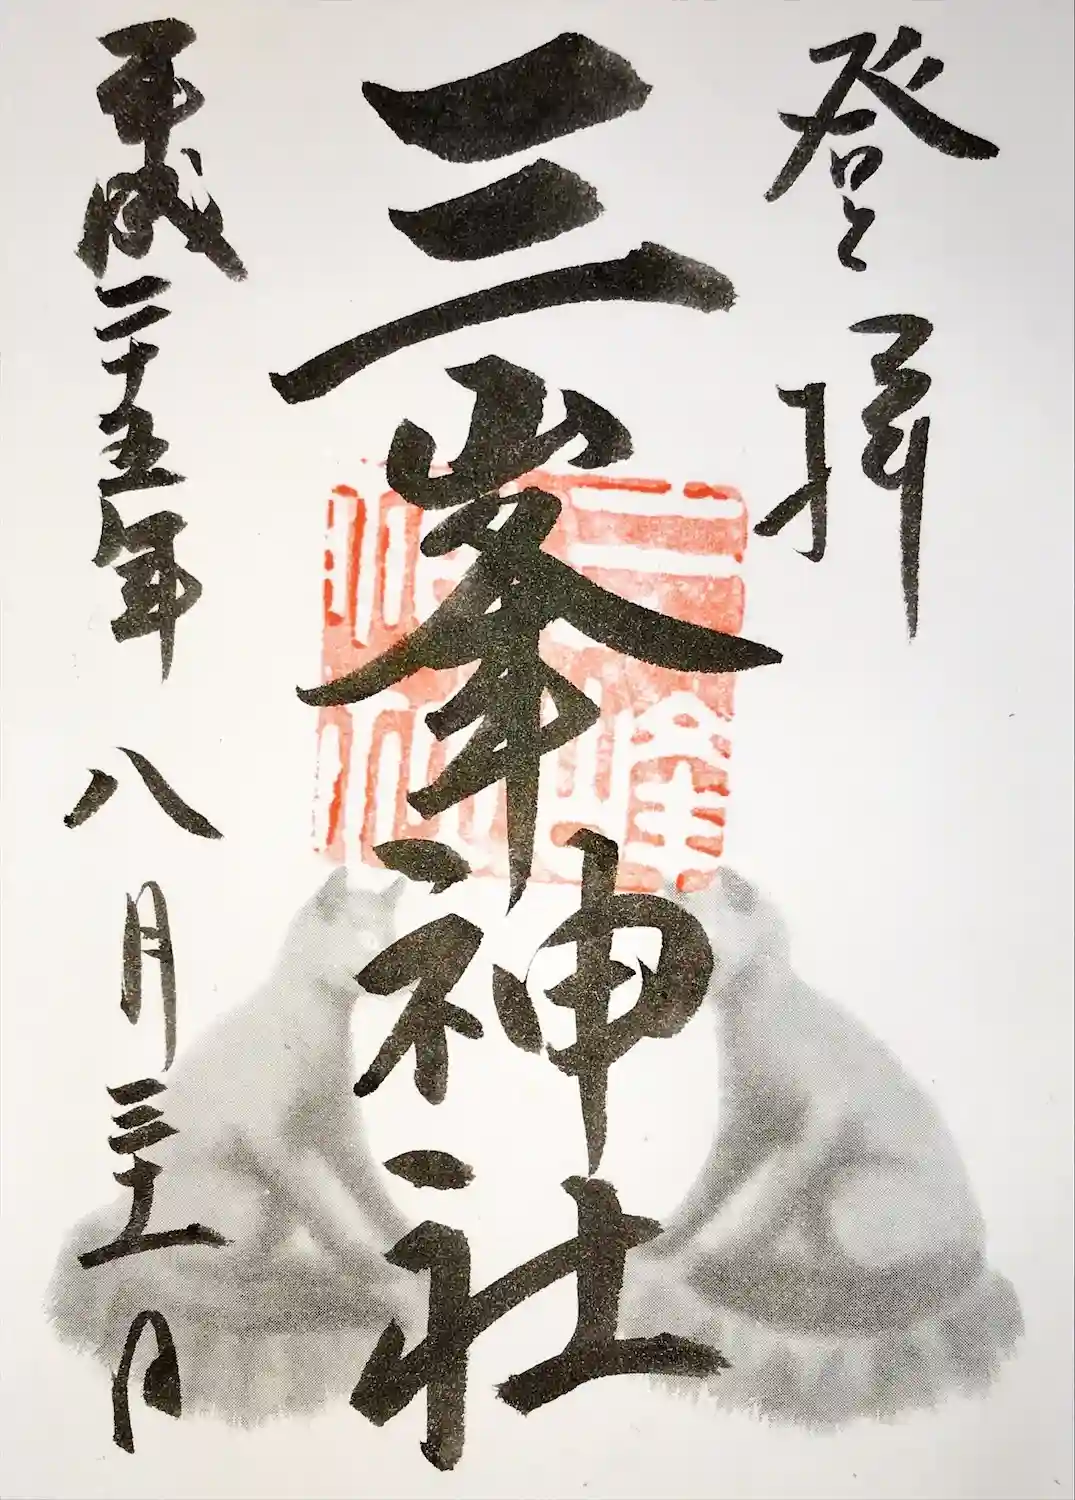 登拝
三峯神社
平成二十五年八月三十一日